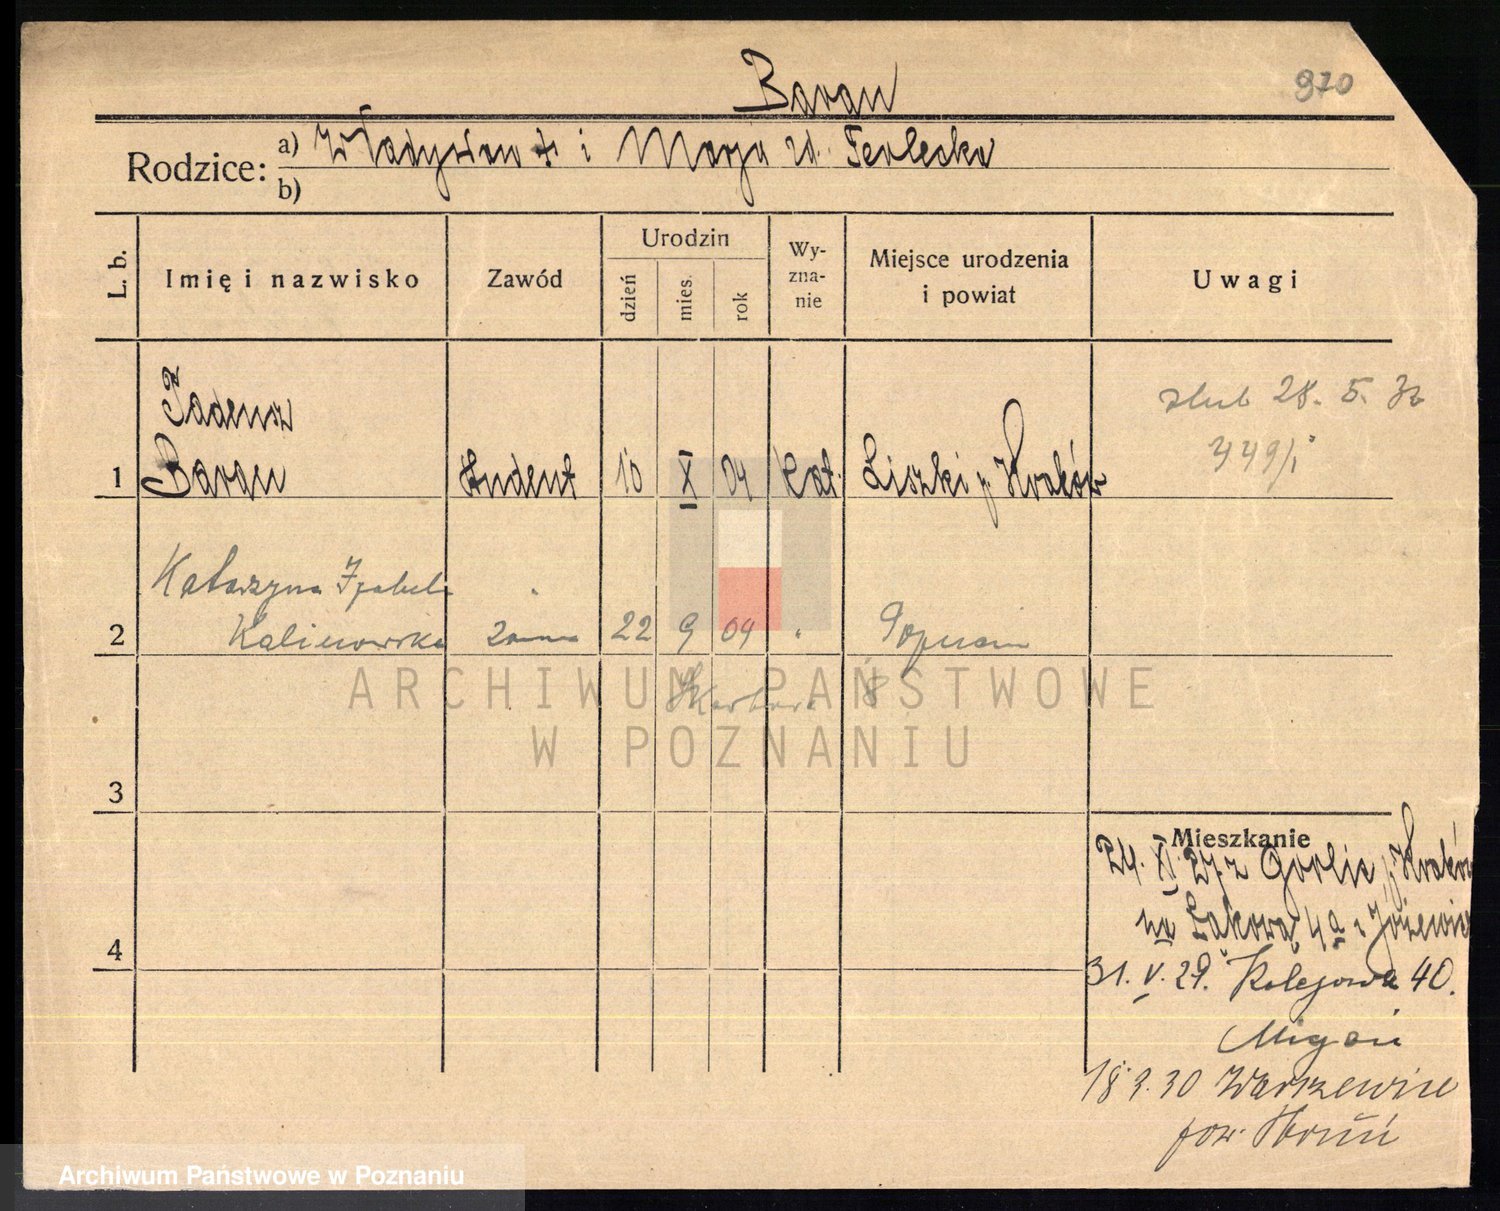 Baran
970
Rodzice: a) Władysław i Marja zd.
b)
L. b. Imię i nazwisko Zawód Urodzin dzień mies. rok Wy-zna-nie Miejsce urodzenia i powiat Uwagi
Tadeusz
1 Baran student 10 X 04 kat. Liszki p. Kraków
ślub 28. 5. 32
449/
Katarzyna Izabela
2 Kalinowska 22 9 04 "
Skarbowa 8
3
4
Mieszkanie
24. XI. 27 z Gorlic p. Kraków
na Łąkową 4a
31. V. 29. Kolejowa 40.
18 3. 30
pow.
ARCHIWUM PAŃSTWOWE
W POZNANIU
Archiwum Państwowe w Poznaniu